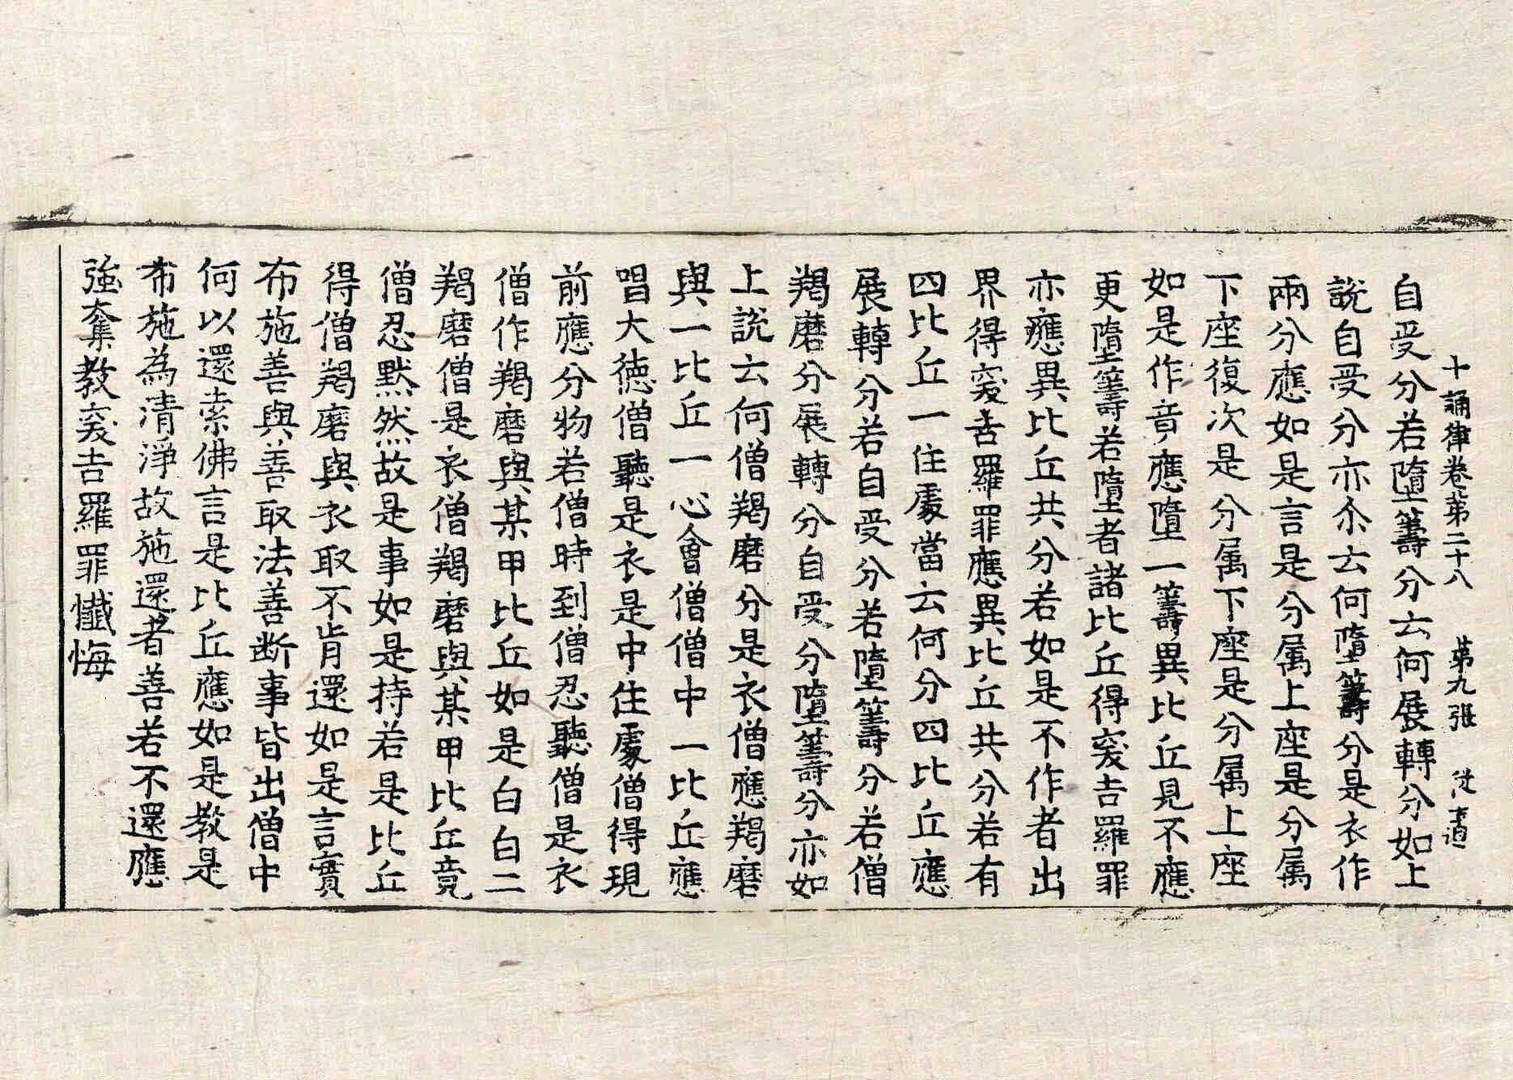 十誦律卷第二十八 第九張
自受分若墮籌分云何展轉分如上
說自受分亦尒云何墮籌分是衣作
兩分應如是言是分属上座是分属
下座復次是分属下座是分属上座
如是作竟應墮一籌異比丘見不應
更墮籌若墮者諸比丘得突吉羅罪
亦應異比丘共分若如是不作者出
界得突吉羅罪應異比丘共分若有
四比丘一住處當云何分四比丘應
展轉分若自受分若墮籌分若僧
羯磨分展轉分自受分墮籌分亦如
上說云何僧羯磨分是衣僧應羯磨
與一比丘一心會僧僧中一比丘應
唱大德僧聽是衣是中住處僧得現
前應分物若僧時到僧忍聽僧是衣
僧作羯磨與某甲比丘如是白白二
羯磨僧是衣僧羯磨與某甲比丘竟
僧忍默然故是事如是持若是比丘
得僧羯磨與衣取不肯還如是言實
布施善與善取法善断事皆出僧中
何以還索佛言是比丘應如是教是
布施為清淨故施還者善若不還應
強奪教突吉羅罪懺悔